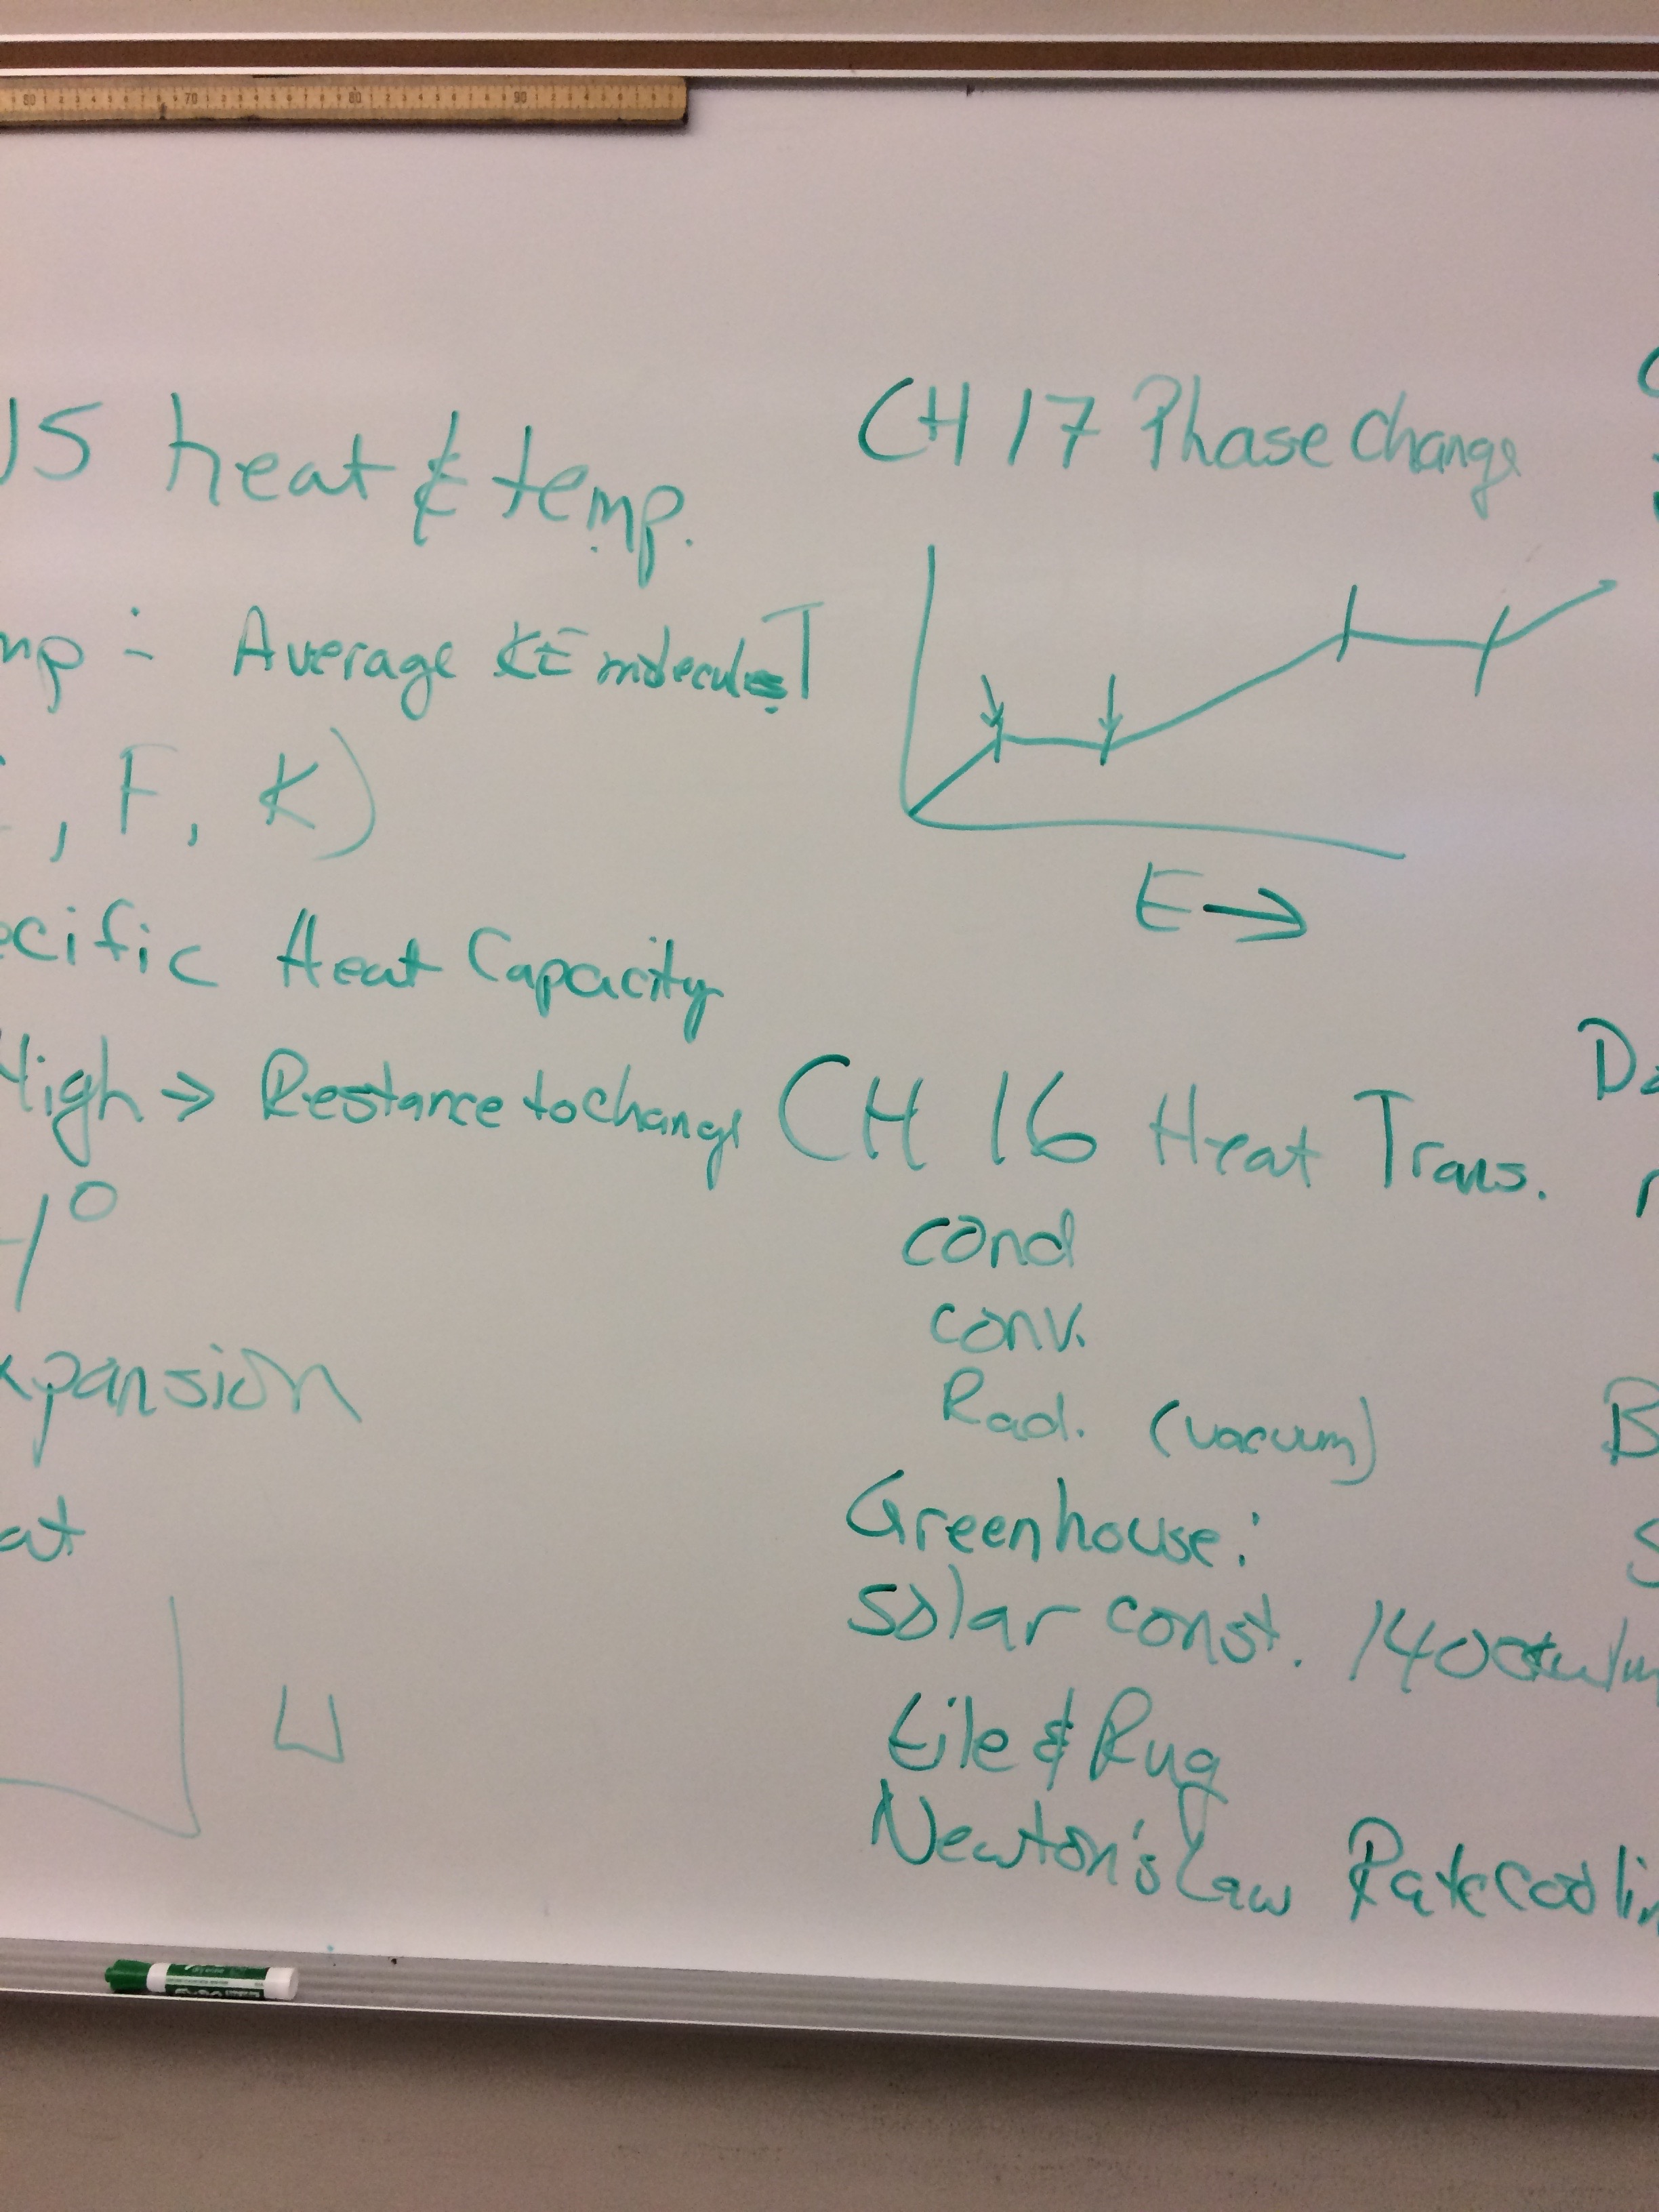 60 70 80 90
15 heat & temp.
mp :- Average KE molecules
, F, K)
ecific Heat Capacity
High → Restance to change
4°
xpansion
at
CH 17 Phase Change
T
E →
CH 16 Heat Trans.
cond
conv.
Rad. (vacuum)
Greenhouse:
Solar const. 1400
tile & Rug
Newton's Law Rate coolin
Da
B
S